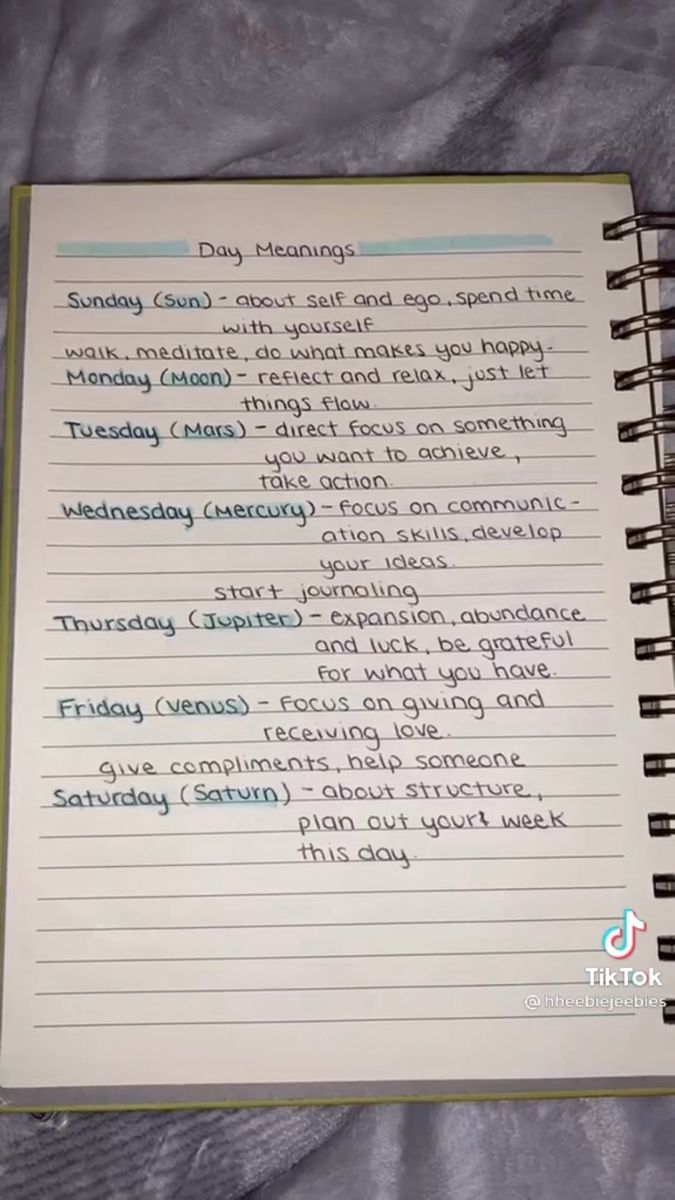 Day Meanings
Sunday (Sun) - about self and ego, spend time
with yourself
walk, meditate, do what makes you happy.
Monday (Moon) - reflect and relax, just let
things flow.
Tuesday (Mars) - direct focus on something
you want to achieve,
take action.
Wednesday (Mercury) - focus on communic-
ation skills, develop
your ideas.
start journaling
Thursday (Jupiter) - expansion, abundance
and luck, be grateful
for what you have.
Friday (Venus) - Focus on giving and
receiving love.
give compliments, help someone
Saturday (Saturn) - about structure,
plan out your week
this day.
TikTok
@hheebiejeebies